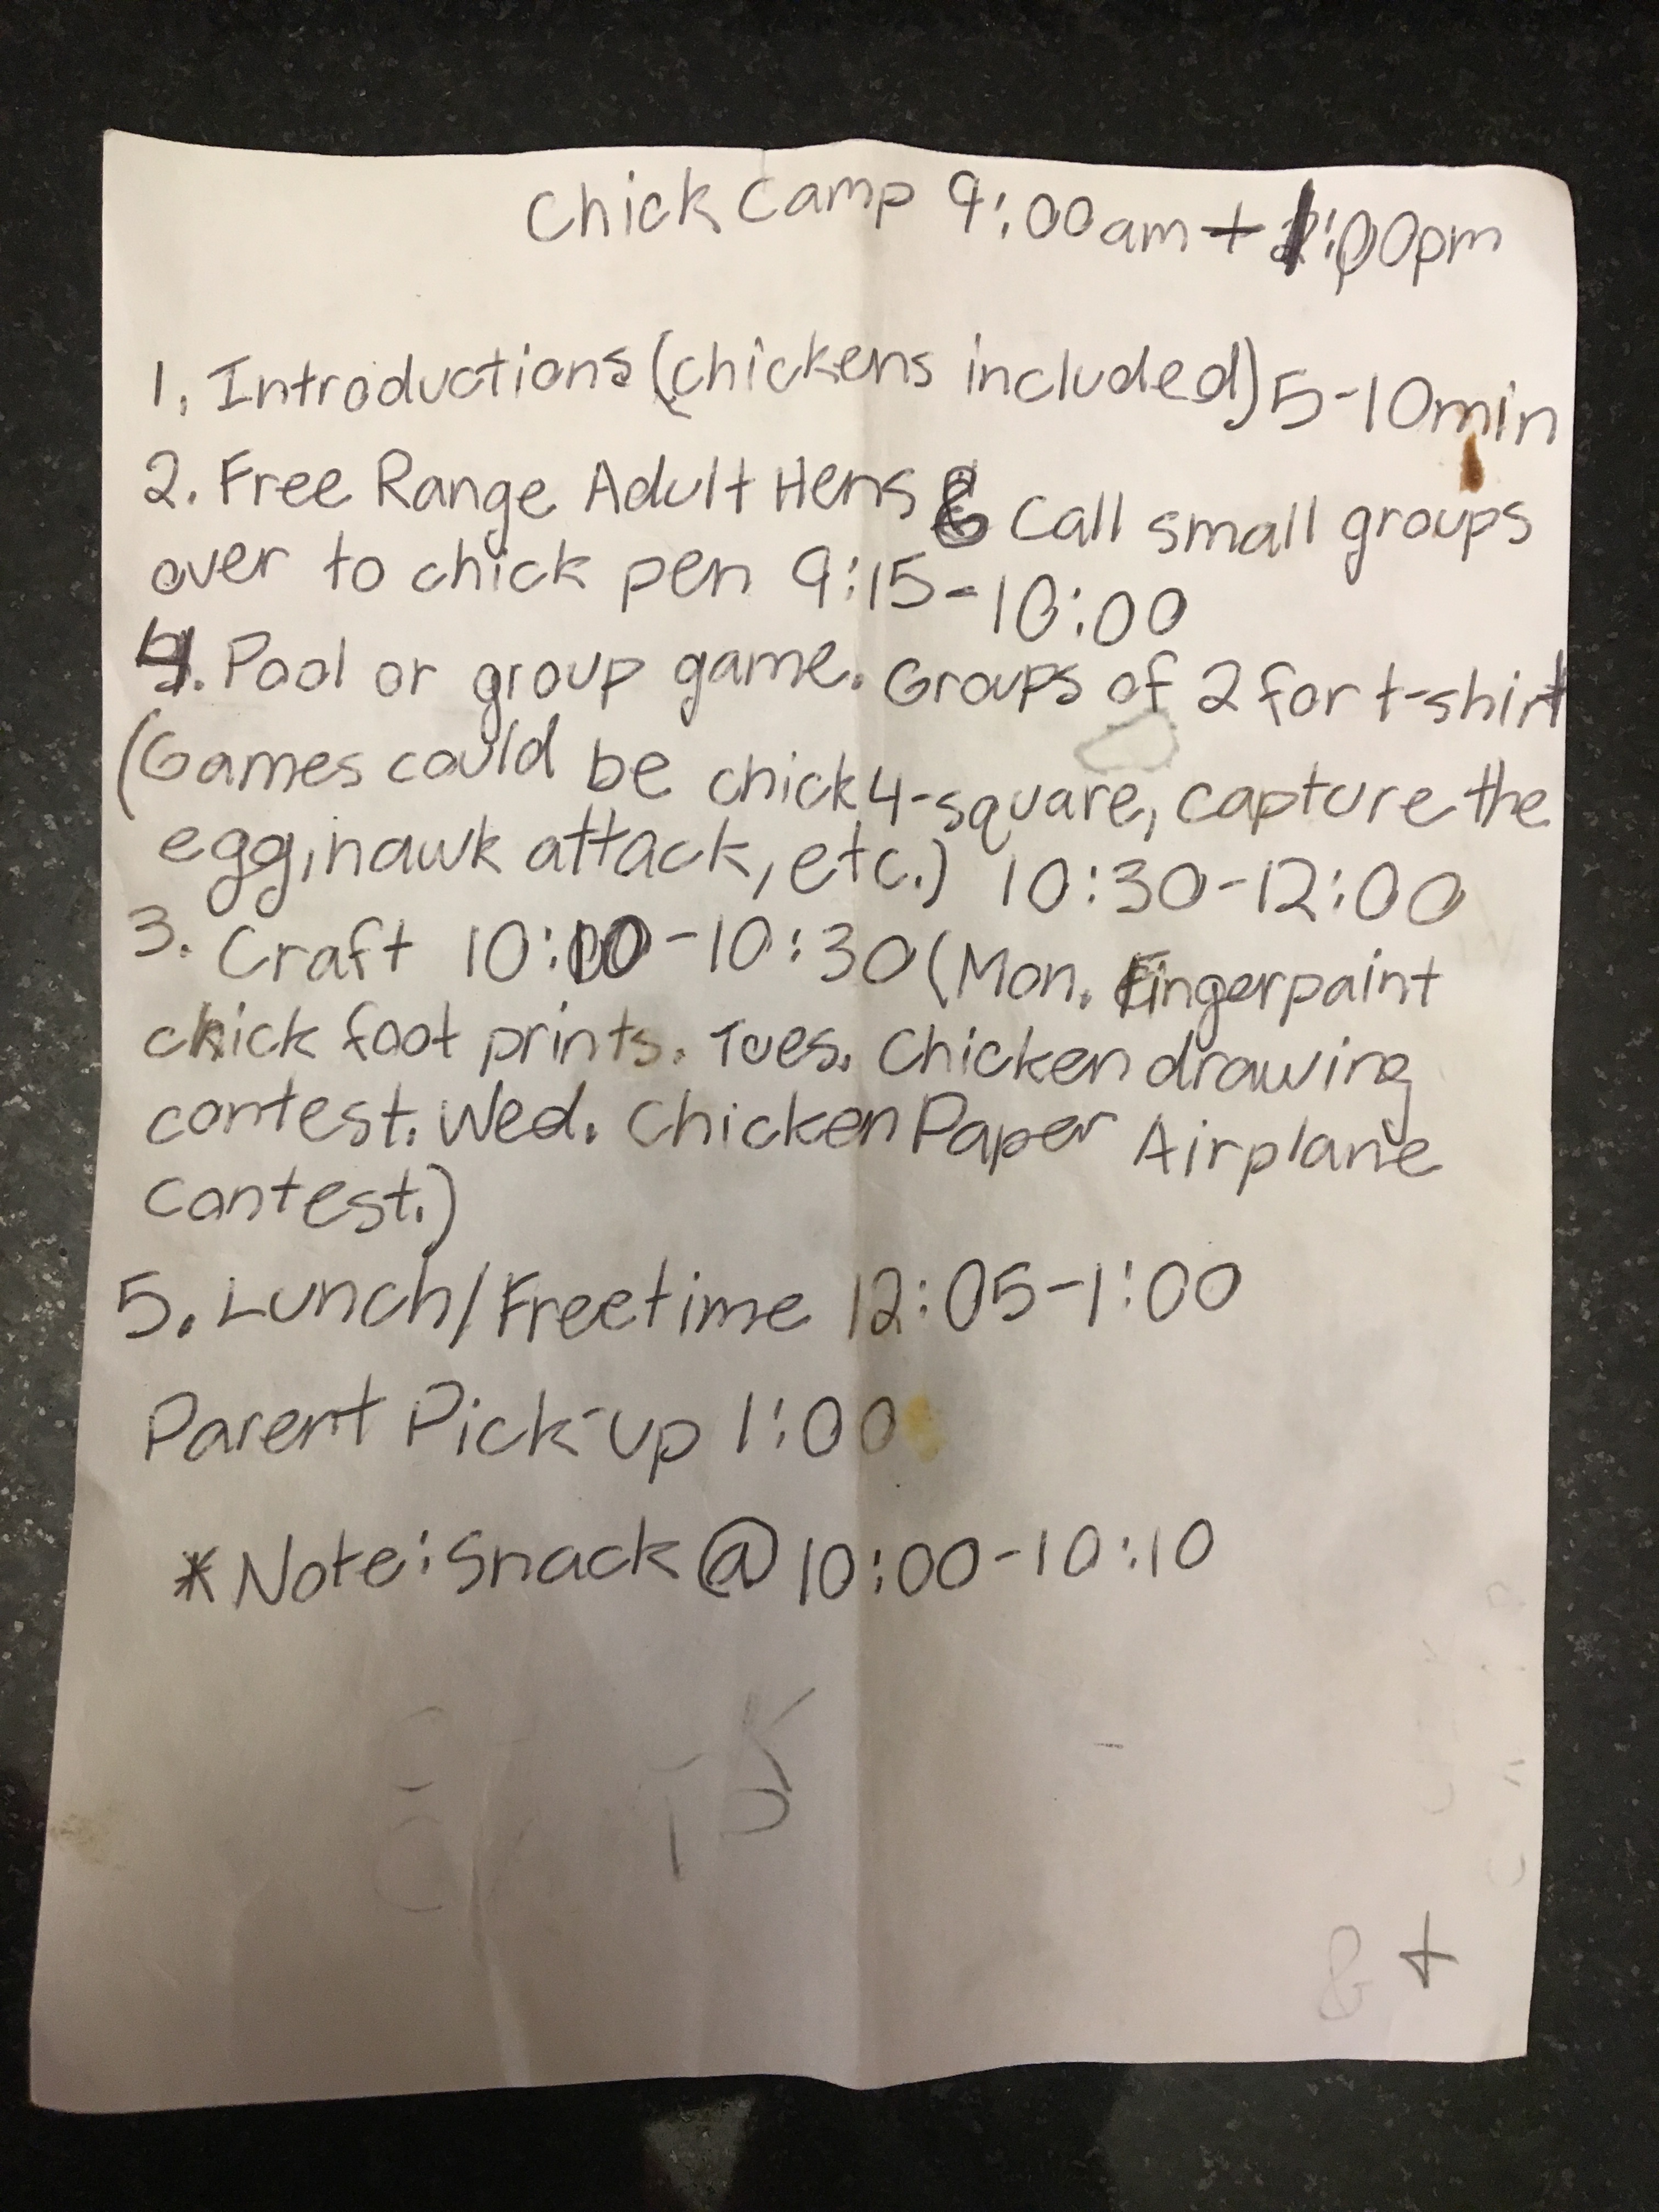 Chick Camp 9:00am + 1:00pm
1. Introductions (chickens included) 5-10min
2. Free Range Adult Hens & call small groups
over to chick pen 9:15-10:00
4. Pool or group game. Groups of 2 for t-shirt
(Games could be chick 4-square, capture the
egg, hawk attack, etc.) 10:30-12:00
3. Craft 10:00-10:30 (Mon. fingerpaint
chick foot prints. Tues. Chicken drawing
contest. Wed. Chicken Paper Airplane
contest.)
5. Lunch/Freetime 12:05-1:00
Parent Pick-up 1:00
*Note: Snack @ 10:00-10:10